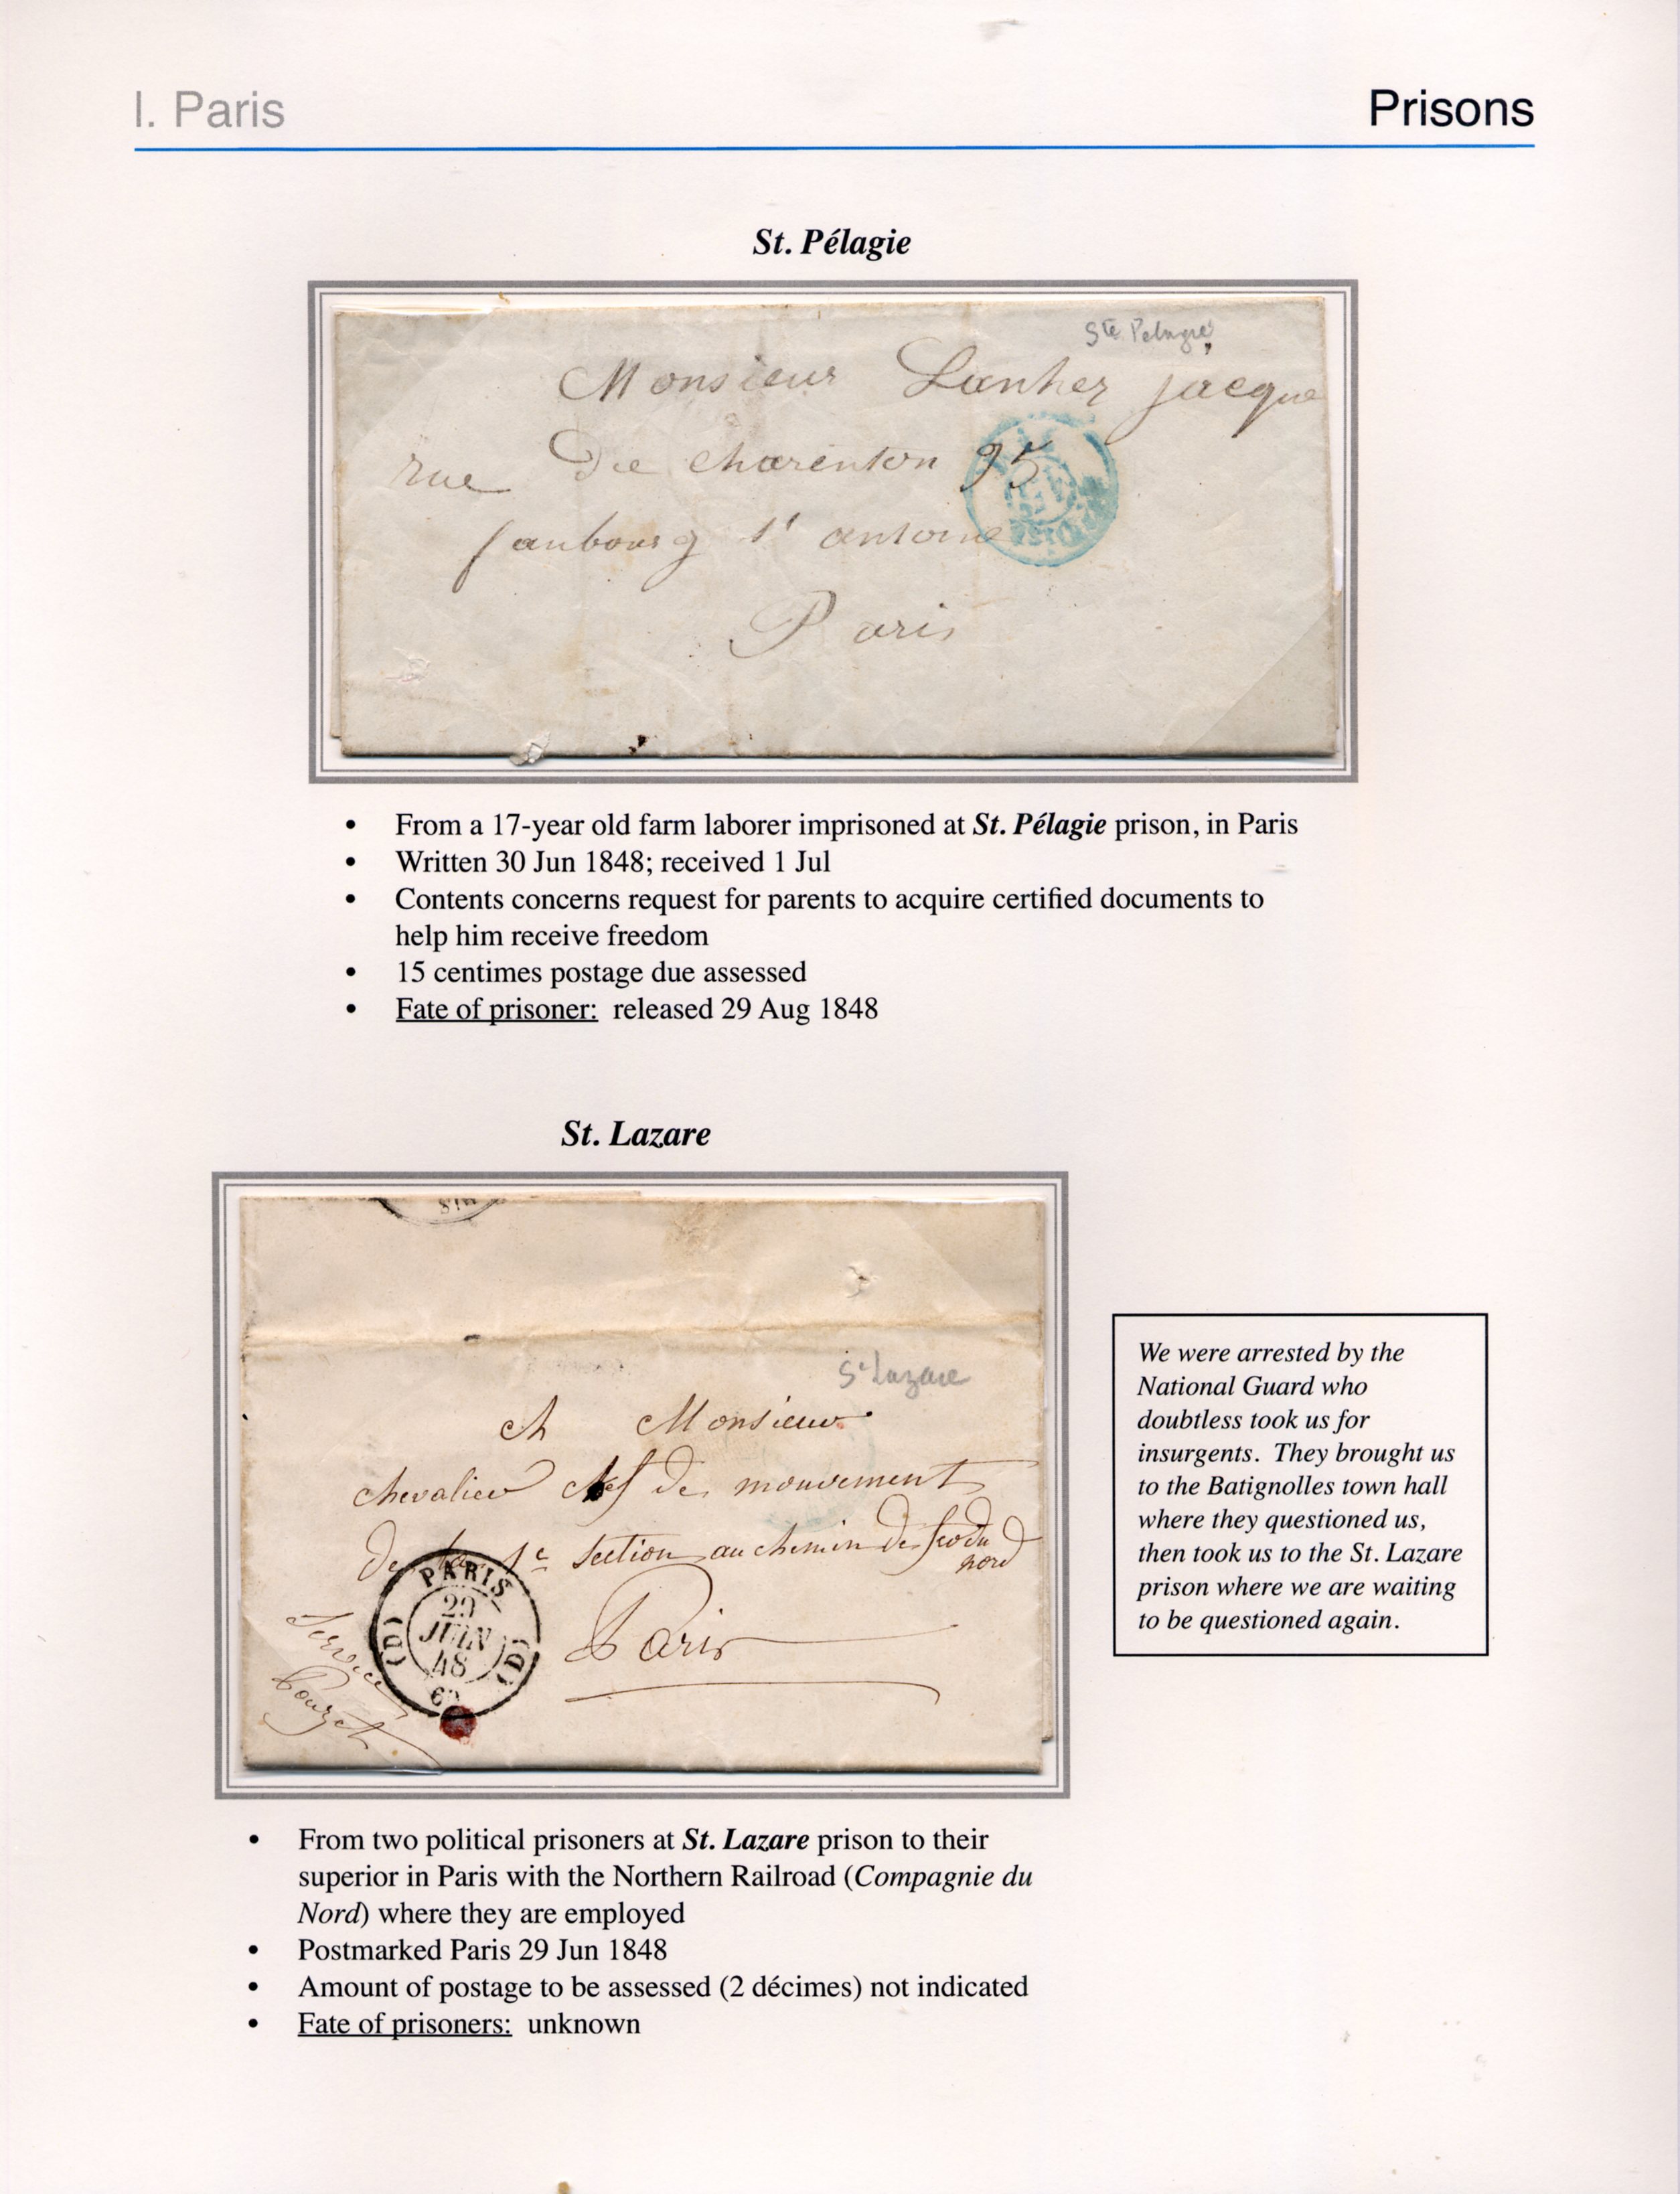 I. Paris
Prisons
St. Pélagie
Ste Pelagie
Monsieur Lanher jacque
rue De charenton 95
faubourg st antoine
Paris
• From a 17-year old farm laborer imprisoned at St. Pélagie prison, in Paris
• Written 30 Jun 1848; received 1 Jul
• Contents concerns request for parents to acquire certified documents to
help him receive freedom
• 15 centimes postage due assessed
• Fate of prisoner: released 29 Aug 1848
St. Lazare
St Lazare
A Monsieur
chevalier chef de mouvement
De la 1e section au chemin de fer du
nord
PARIS
29
JUIN
48
(D) (D)
Paris
Service
We were arrested by the
National Guard who
doubtless took us for
insurgents. They brought us
to the Batignolles town hall
where they questioned us,
then took us to the St. Lazare
prison where we are waiting
to be questioned again.
• From two political prisoners at St. Lazare prison to their
superior in Paris with the Northern Railroad (Compagnie du
Nord) where they are employed
• Postmarked Paris 29 Jun 1848
• Amount of postage to be assessed (2 décimes) not indicated
• Fate of prisoners: unknown